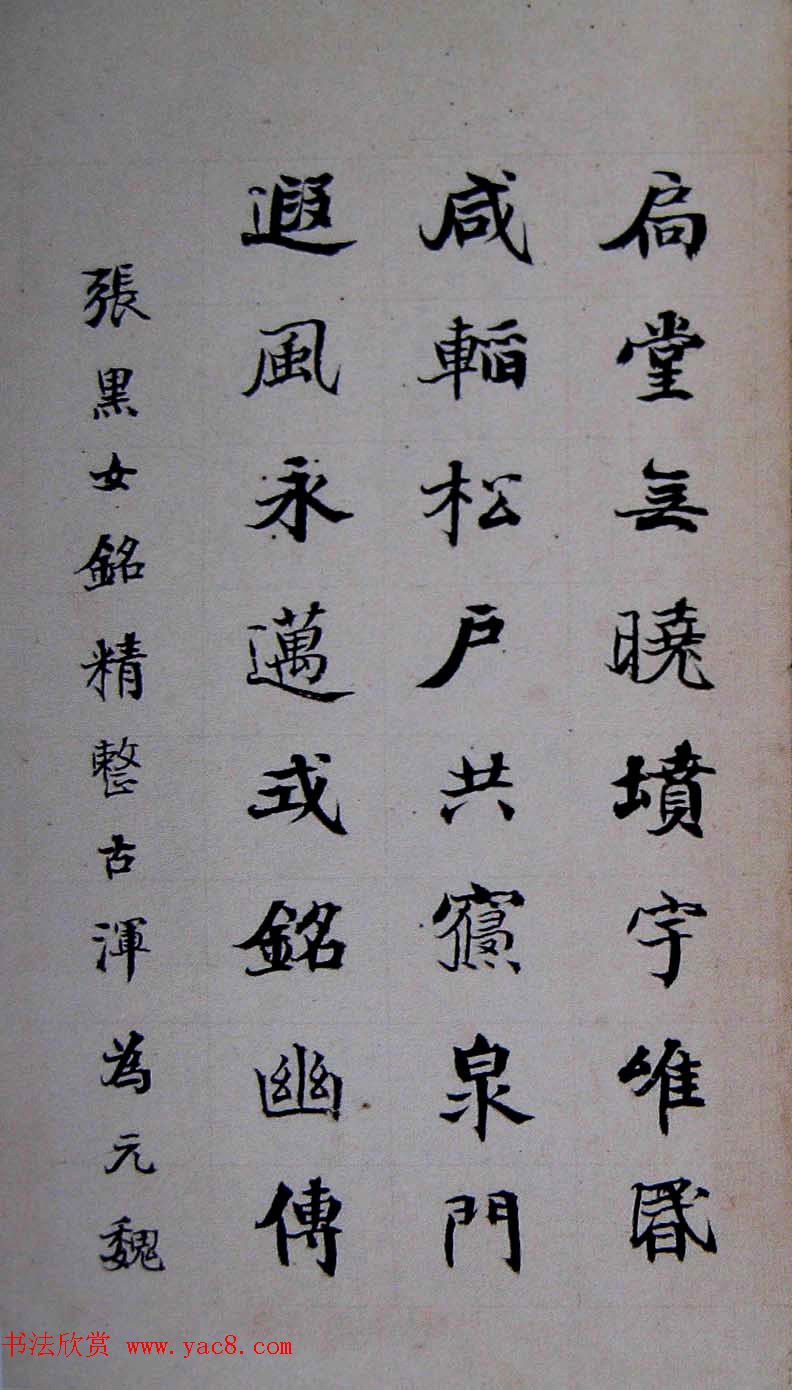 扃堂無曉墳宇唯昏
咸轁松户共寢泉門
遐風永邁式銘幽傳
張黑女銘精整古渾為元魏
书法欣赏 www.yac8.com